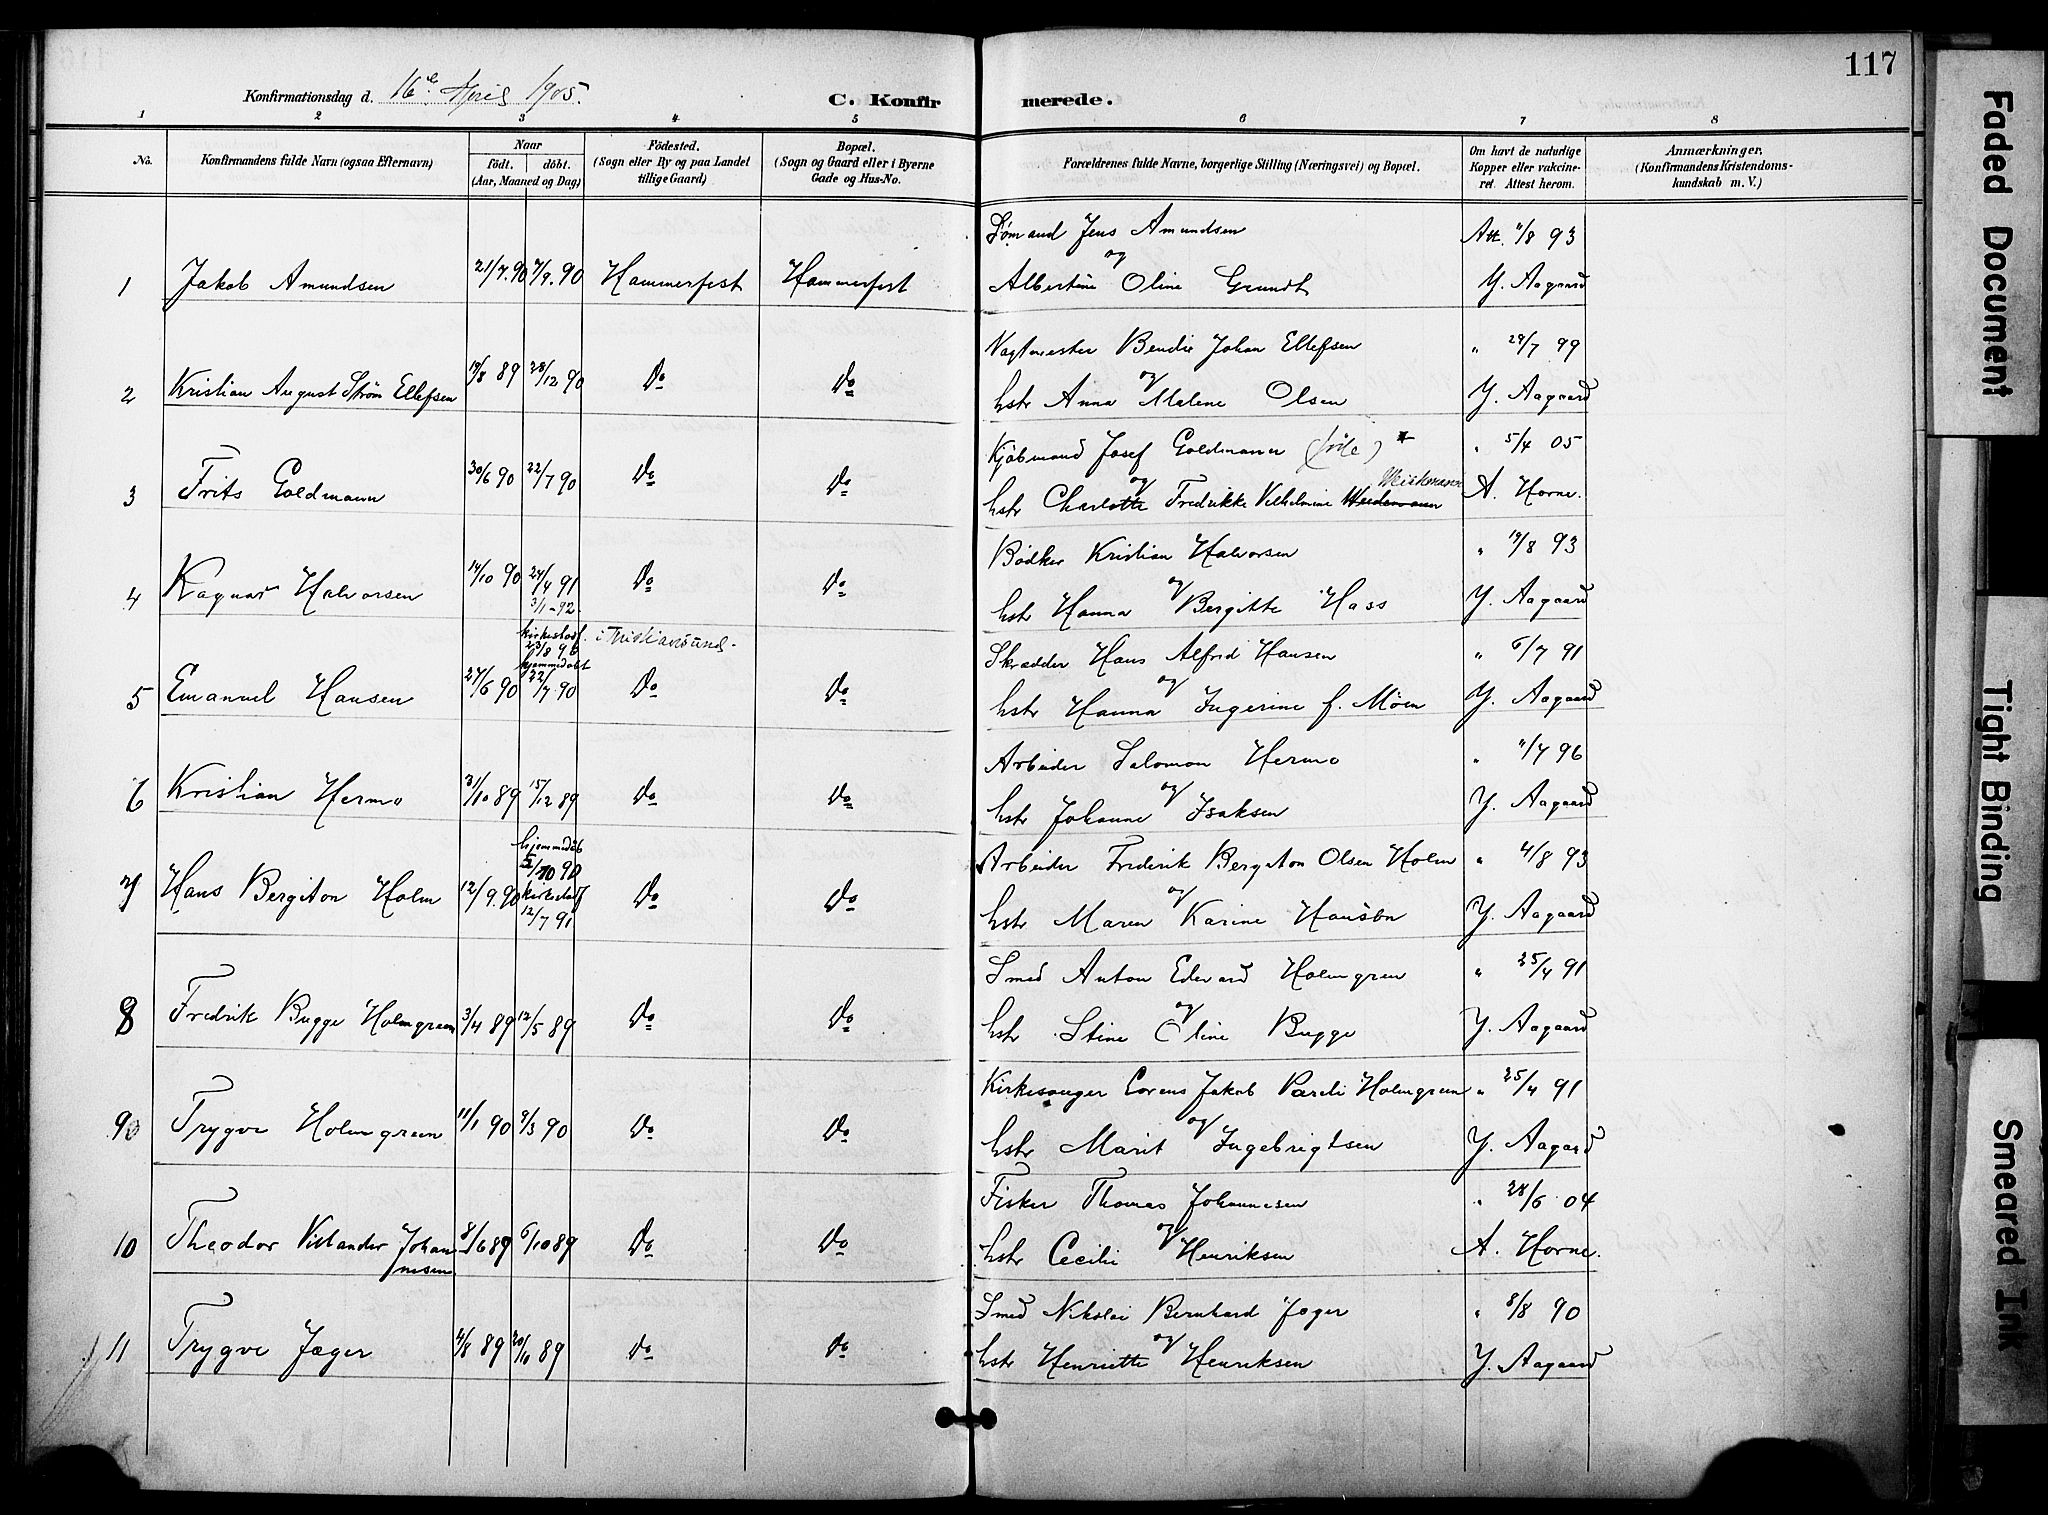 117
Konfirmationsdag d. 16de April 1905.
C. Konfirmerede.
1 2 3 4 5 6 7 8
No.
Konfirmandens fulde Navn (ogsaa Efternavn)
Naar
födt. döbt.
(Aar, Maaned og Dag)
Födested.
(Sogn eller By og paa Landet
tillige Gaard)
Bopæl.
(Sogn og Gaard eller i Byerne
Gade og Hus-No.
Forældrenes fulde Navne, borgerlige Stilling (Næringsvei) og Bopæl.
Om havt de naturlige
Kopper eller vakcine-
ret. Attest herom.
Anmærkninger,
(Konfirmandens Kristendoms-
kundskab m. V.)
Sømand Jens Amundsen Att. 11/8 93
og
1 Jakob Amundsen 21/7.90 7/9.90 Hammerfest Hammerfest Albertine Oline Grundt Y. Aagaard
Vagtmester Bendix Johan Ellefsen " 29/7 99
og
2 Kristian August Strøm Ellefsen 19/8 89 28/12 90 Do Do hstr Anna Malene Olsen Y. Aagaard
Kjøbmand Josef Goldmann (jøde) * " 5/4 05
og Weickmann
3 Frits Goldmann 30/6 90 22/7 90 Do Do hstr Charlotte Fredrikke Vilhelmine Weidemann A. Horne.
Bødker Kristian Halvorsen " 19/8 93
og
4 Ragnar Halvorsen 14/10 90 24/4 91 Do Do hstr Hanna Bergitte Hass Y. Aagaard
3/1-92
kirkestadf. i Kristiansund.
23/8 96
hjemmedøbt
Skrædder Hans Alfrid Hansen " 6/7 91
og
5 Emanuel Hansen 27/6 90 22/7.90 Do Do hstr Hanna Ingerine f. Moen Y. Aagaard
Arbeider Salomon Hermo " 11/7 96
og
6 Kristian Hermo 31/10 89 15/12 89 Do Do hstr Johanne Isaksen Y. Aagaard
hjemmedøb
5/10 90
Arbeider Frederik Bergiton Olsen Holm " 4/8 93
og
7 Hans Bergiton Holm 12/9.90 kirkestadf Do Do hstr Maren Karine Hansen Y. Aagaard
12/7 91
Smed Anton Edevard Holmgren " 25/4 91
og
8 Fredrik Bugge Holmgreen 3/4 89 12/5 89 Do Do hstr Stine Oline Bugge Y. Aagaard
Kirkesanger Lorens Jakob Pareli Holmgreen " 25/4 91
og
9 Trygve Holmgreen 11/1 90 9/3 90 Do Do hstr Marit Ingebrigtsen Y. Aagaard
Fisker Thomas Johannesen " 28/6 04
og
10 Theodor Vislander Johannesen 8/6 89 6/10 89 Do Do hstr Cecilie Henriksen A. Horne.
Smed Nikolai Bernhard Jæger " 8/8 90
og
11 Trygve Jæger 4/8 89 20/10 89 Do Do hstr Henriette Henriksen Y. Aagaard
Faded Document
Tight Binding
Smeared Ink